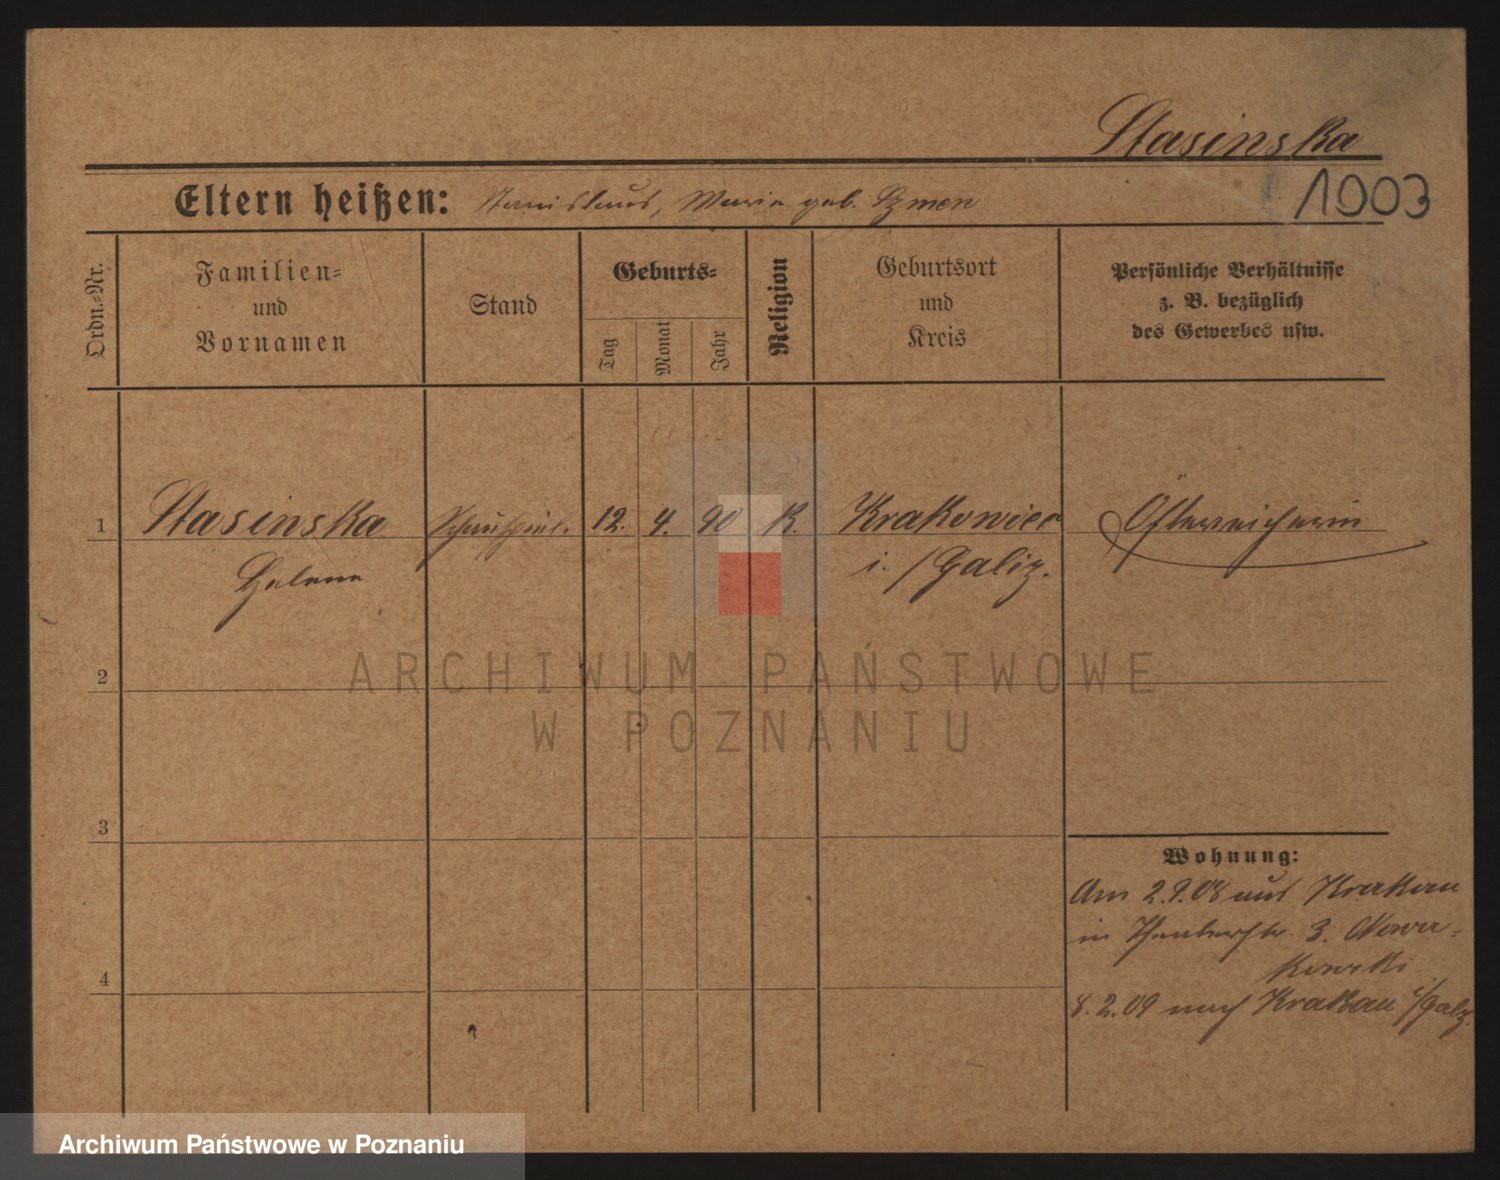 Stasinska
1003
Eltern heißen: Stanislaus, Maria geb. Szmen
Ordn.=Nr.
Familien=
und
Vornamen
Stand
Geburts=
Tag
Monat
Jahr
Religion
Geburtsort
und
Kreis
Persönliche Verhältnisse
z. B. bezüglich
des Gewerbes usw.
1 Stasinska Schauspiel. 12. 4. 90 K. Krakowiec Österreicherin
Helene i./Galiz.
ARCHIWUM PAŃSTWOWE
W POZNANIU
2
3
Wohnung:
Am 2.9.08 aus Krakau
in Theaterstr. 3. Nowa=
kowski
4
8.2.09 nach Krakau i/Galz.
Archiwum Państwowe w Poznaniu